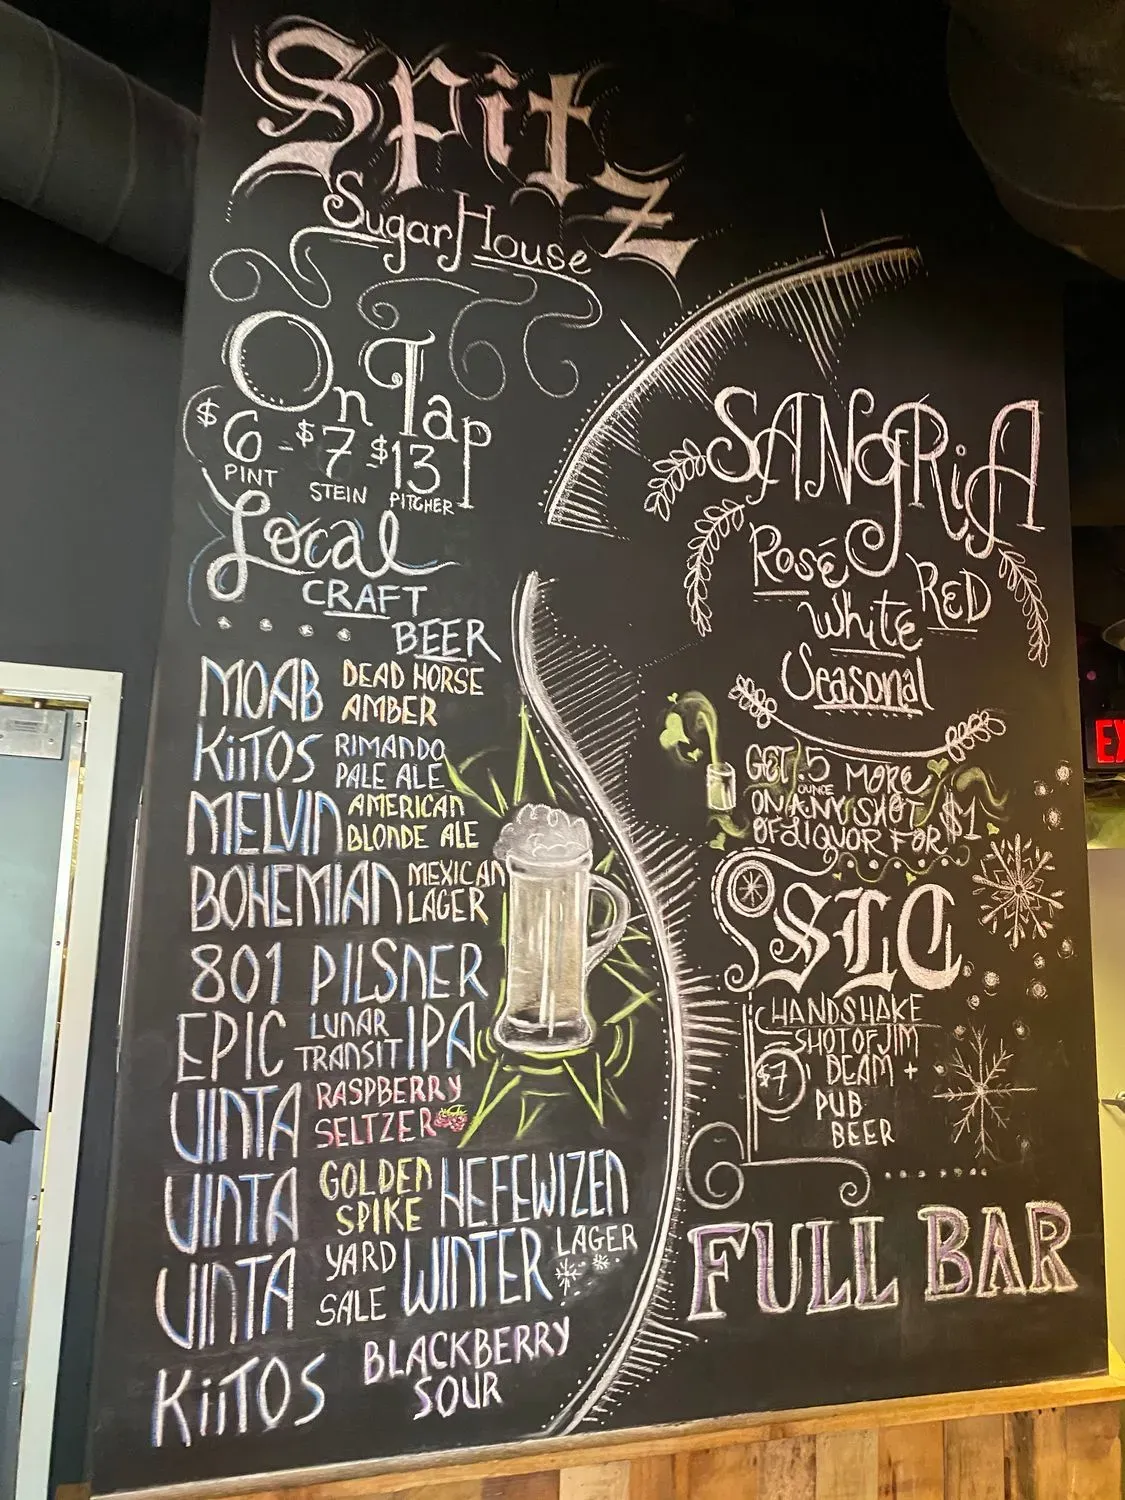 Spitz
SugarHouse
On Tap
$6 - $7 - $13
PINT STEIN PITCHER
Local
CRAFT
BEER
MOAB DEAD HORSE
AMBER
KiiTOS RIMANDO
PALE ALE
MELVIN AMERICAN
BLONDE ALE
BOHEMIAN MEXICAN
LAGER
801 PILSNER
EPIC LUNAR
TRANSIT IPA
UINTA RASPBERRY
SELTZER
UINTA GOLDEN
SPIKE HEFEWIZEN
UINTA YARD
SALE WINTER LAGER
KiiTOS BLACKBERRY
SOUR
SANGRiA
Rosé
RED
White
Seasonal
GET .5 OUNCE MORE
ON ANY SHOT
OF LIQUOR FOR $1
SLC
HANDSHAKE
SHOT OF JIM
BEAM +
$7
PUB
BEER
FULL BAR
EX